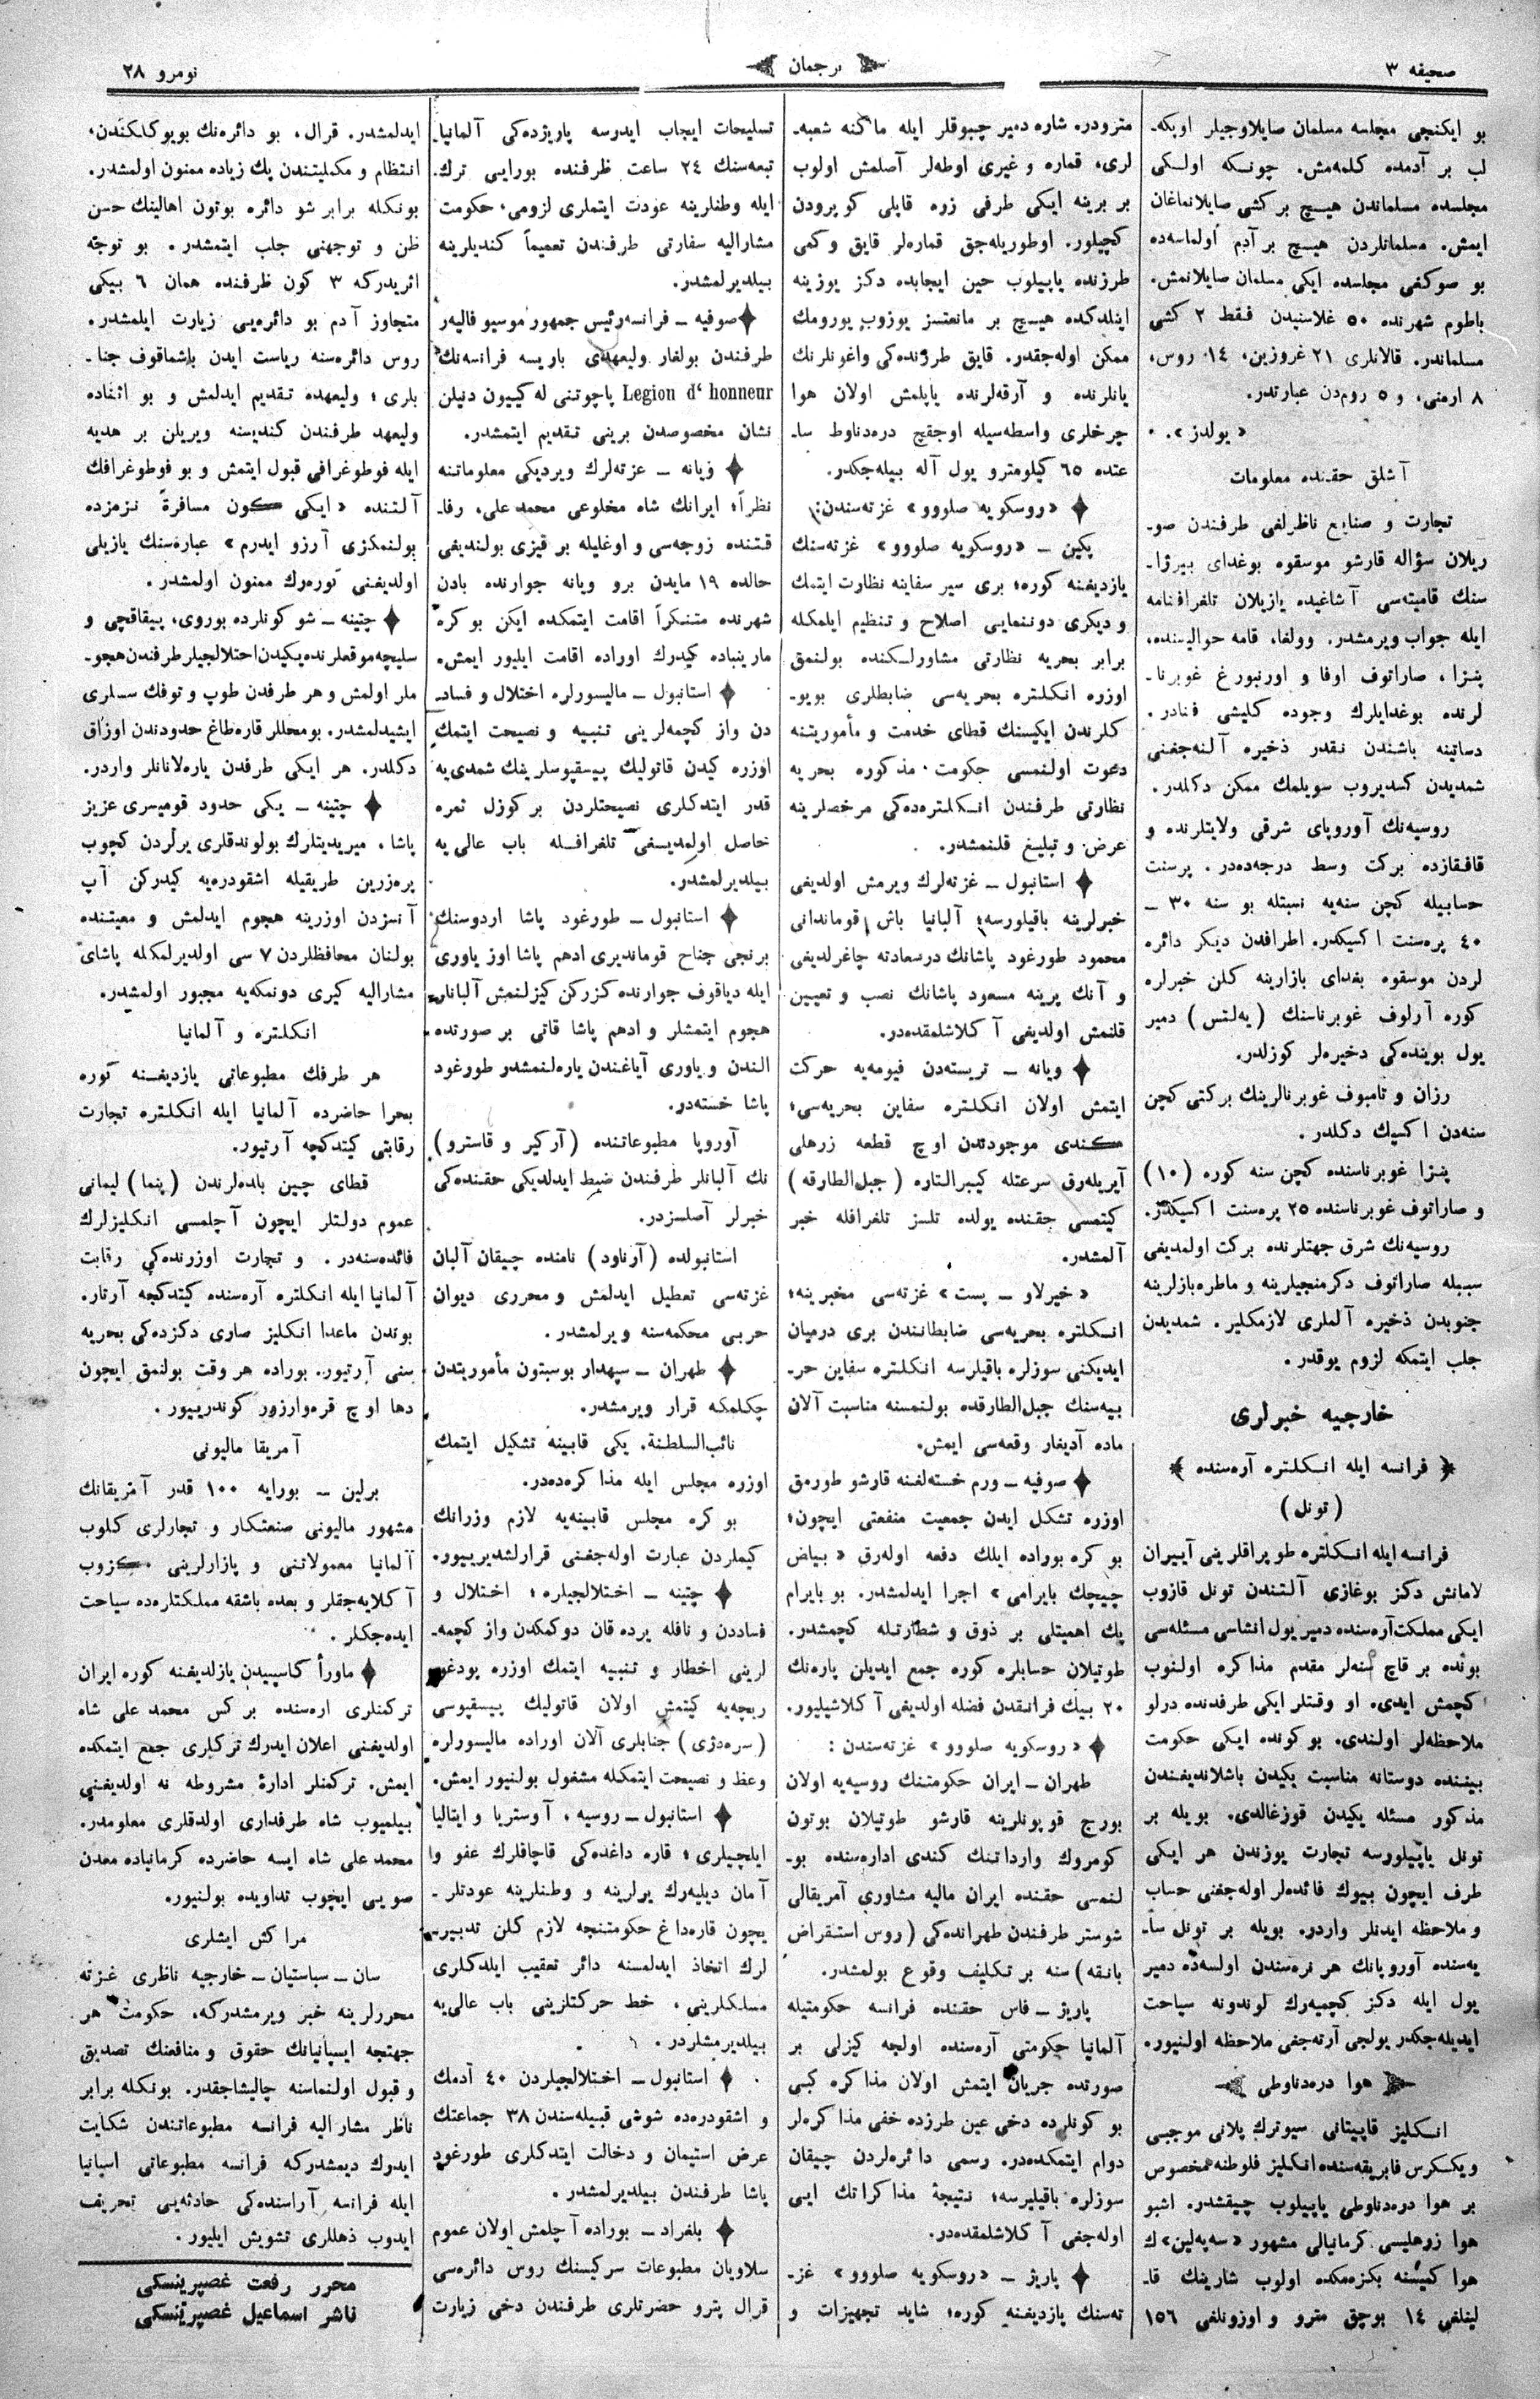 صحیفه ٣
ترجمان
نومرو ٢٨
بو ایكنجی مجلسه مسلمان صایلاوجیلر اوپكه‌ـ
لب بر آدمده كلمه‌مش. چونكه اولكی
مجلسده مسلماندن هیچ بر كشی صایلانماغان
ایمش. مسلمانلردن هیچ بر آدم اولماسه‌ده
بو صوكغی مجلسده ایكی مسلمان صایلانمش.
باطوم شهرنده ٥٠ غلاسنیدن فقط ٢ كشی
مسلماندر. قالانلری ٢١ غروزین، ١٤ روس،
٨ ارمنی، و ٥ روم‌دن عبارتدر.
« یولدز ».
آشلق حقنده معلومات
تجارت و صنایع ناظرلغی طرفندن صوـ
ریلان سؤاله قارشو موسقوه بوغدای بیرژاـ
سنك قامیته‌سی آشاغیده یازیلان تلغرافنامه
ایله جواب ویرمشدر. وولغا، قامه حوالیسنده،
پنزا، صاراتوف اوفا و اورنبورغ غوبرناـ
لرنده بوغدایلرك وجوده كلیشی فنادر.
دساتینه باشندن نقدر ذخیره آلنه‌جغنی
شمدیدن كسدیروب سویلمك ممكن دكلدر.
روسیه‌نك آوروپای شرقی ولایتلرنده و
قافقازده بركت وسط درجه‌ده‌در. پرسنت
حسابیله كچن سنه‌یه نسبتله بو سنه ٣٠ ـ
٤٠ پره‌سنت اكسیكدر. اطرافدن دیكر دائره
لردن موسقوه بغدای بازارینه كلن خبرلره
كوره آرلوف غوبرناسنك (یه‌لتس) دمیر
یول بوینده‌كی ذخیره‌لر كوزلدر.
رزان و تامبوف غوبرنالرینك بركتی كچن
سنه‌دن اكسیك دكلدر.
پنزا غوبرناسنده كچن سنه كوره (١٠)
و صاراتوف غوبرناسنده ٢٥ پره‌سنت اكسیكدر.
روسیه‌نك شرق جهتلرنده بركت اولمدیغی
سببله صاراتوف دكرمنجیلرینه و ماطره‌بازلرینه
جنوبدن ذخیره آلملری لازمكلیر. شمدیدن
جلب ایتمكه لزوم یوقدر.
خارجیه خبرلری
﴿ فرانسه ایله انكلتره آره‌سنده ﴾
(تونل)
فرانسه ایله انكلتره طوپراقلرینی آییران
لامانش دكز بوغازی آلتندن تونل قازوب
ایكی مملكت‌آره‌سنده دمیر یول انشاسی مسئله‌سی
بونده بر قاچ سنه‌لر مقدم مذاكره اولنوب
كچمش ایدی. او وقتلر ایكی طرفدنده درلو
ملاحظه‌لر اولندی. بو كونده ایكی حكومت
بیننده دوستانه مناسبت یكیدن باشلاندیغندن
مذكور مسئله یكیدن قوزغالدی. بویله بر
تونل یاپیلورسه تجارت یوزندن هر ایكی
طرف ایچون بیوك فائده‌لر اوله‌جغنی حساب
و ملاحظه ایدنلر واردر. بویله بر تونل ساـ
یه‌سنده آوروپانك هر نره‌سندن اولسه‌ده دمیر
یول ایله دكز كچمیه‌رك لوندونه سیاحت
ایدیله‌جكدر یولجی آرته‌جغی ملاحظه اولنیور.
هوا دره‌دناوطی
انكلیز قاپیتانی سیوترك پلانی موجبی
ویككرس فابریقه‌سنده انكلیز فلوطنه مخصوص
بر هوا دره‌دناوطی یاپیلوب چیقشدر. اشبو
هوا زرهلیسی كرمانیالی مشهور «سه‌په‌لین» ك
هوا كمیسنه بكزه‌مكده اولوب شارینك قاـ
لینلغی ١٤ بوچق مترو و اوزونلغی ١٥٦
مترودره شاره دمیر چبوقلر ایله ماكنه شعبه‌ـ
لری، قماره و غیری اوطه‌لر آصلمش اولوب
بر برینه ایكی طرفی زره قاپلی كوپرودن
كچیلور. اوطوریله‌جق قماره‌لر قایق و كمی
طرزنده یاپیلوب حین ایجابده دكز یوزینه
اینلدكده هیچ بر مانعتسز یوزوب یورومك
ممكن اوله‌جقدر. قایق طرزنده‌كی واغونلرنك
یانلرنده و آرقه‌لرنده یاپلمش اولان هوا
چرخلری واسطه‌سیله اوجقچ دره‌دناوط ساـ
عتده ٦٥ كیلومترو یول آله بیله‌جكدر.
«روسكویه صلووو» غزته‌سندن:
پكین ـ «روسكویه صلووو» غزته‌سنك
یازدیغنه كوره؛ بری سیر سفاینه نظارت ایتمك
و دیكری دوننمایی اصلاح و تنظیم ایلمكله
برابر بحریه نظارتی مشاورلكنده بولنمق
اوزره انكلتره بحریه‌سی ضابطلری بویوـ
كلرندن ایكیسنك قطای خدمت و مأموریتنه
دعوت اولنمسی حكومت مذكوره بحریه
نظارتی طرفندن انكلتره‌ده‌كی مرخصلرینه
عرض و تبلیغ قلنمشدر.
استانبول ـ غزته‌لرك ویرمش اولدیغی
خبرلرینه باقیلورسه؛ آلبانیا باش قوماندانی
محمود طورغود پاشانك درسعادته چاغرلدیغی
و آنك یرینه مسعود پاشانك نصب و تعیین
قلنمش اولدیغی آكلاشلمقده‌در.
ویانه ـ تریسته‌دن فیومه‌یه حركت
ایتمش اولان انكلتره سفاین بحریه‌سی؛
كندی موجودتندن اوچ قطعه زرهلی
آیریله‌رق سرعتله كیبرالتاره (جبل‌الطارقه)
كیتمسی حقنده یولده تلسز تلغرافله خبر
آلمشدر.
«خیرلاو ـ پست» غزته‌سی مخبرینه؛
انكلتره بحریه‌سی ضابطانندن بری درمیان
ایدیكنی سوزلره باقیلرسه انكلتره سفاین حرـ
بیه‌سنك جبل‌الطارقده بولنمسنه مناسبت آلان
ماده آدیغار وقعه‌سی ایمش.
صوفیه ـ ورم خسته‌لغنه قارشو طورمق
اوزره تشكل ایدن جمعیت منفعتی ایچون؛
بو كره بوراده ایلك دفعه اوله‌رق «بیاض
چیچك بایرامی» اجرا ایدلمشدر. بو بایرام
پك اهمیتلی بر ذوق و شطارتله كچمشدر.
طوتیلان حسابلره كوره جمع ایدیلن پاره‌نك
٢٠ بیك فرانقدن فضله اولدیغی آكلاشیلیور.
«روسكویه صلووو» غزته‌سندن:
طهران ـ ایران حكومتنك روسیه‌یه اولان
بورج قوپونلرینه قارشو طوتیلان بوتون
كومروك وارداتنك كندی اداره‌سنده بوـ
لنمسی حقنده ایران مالیه مشاوری آمریقالی
شوستر طرفندن طهرانده‌كی (روس استقراض
بانقه) سنه بر تكلیف وقوع بولمشدر.
پاریژ ـ فاس حقنده فرانسه حكومتیله
آلمانیا حكومتی آره‌سنده اولجه كیزلی بر
صورتده جریان ایتمش اولان مذاكره كبی
بو كونلرده دخی عین طرزده خفی مذاكره‌لر
دوام ایتمكده‌در. رسمی دائره‌لردن چیقان
سوزلره باقیلیرسه؛ نتیجۀ مذاكراتك ایی
اوله‌جغی آكلاشلمقده‌در.
پاریژ ـ «روسكویه صلووو» غزـ
ته‌سنك یازدیغنه كوره؛ شاید تجهیزات و
تسلیحات ایجاب ایدرسه پاریژده‌كی آلمانیا
تبعه‌سنك ٢٤ ساعت ظرفنده بورایی ترك
ایله وطنلرینه عودت ایتملری لزومی، حكومت
مشارالیه سفارتی طرفندن تعمیماً كندیلرینه
بیلدیرلمشدر.
صوفیه ـ فرانسه رئیس جمهور موسیو فالیه‌ر
طرفندن بولغار ولیعهدی باریسه فرانسه‌نك
Legion d‘ honneur پاچوتنی له‌كییون دنیلن
نشان مخصوصدن برینی تقدیم ایتمشدر.
ویانه ـ غزته‌لرك ویردیكی معلوماتنه
نظراً؛ ایرانك شاه مخلوعی محمد علی، رفاـ
قتنده زوجه‌سی و اوغلیله بر قیزی بولندیغی
حالده ١٩ مایدن برو ویانه جوارنده بادن
شهرنده متنكراً اقامت ایتمكده ایكن بو كره
مارینباده كیدرك اوراده اقامت ایلیور ایمش.
استانبول ـ مالیسورلره اختلال و فسادـ
دن واز كچمه‌لرینی تنبیه و نصیحت ایتمك
اوزره كیدن قاتولیك پیسقپوسلرینك شمدی‌یه
قدر ایتدكلری نصیحتلردن بر كوزل ثمره
حاصل اولمدیغی تلغرافله باب عالی‌یه
بیلدیرلمشدر.
استانبول ـ طورغود پاشا اردوسنك
برنجی جناح قوماندیری ادهم پاشا اوز یاوری
ایله دیاقوف جوارنده كزركن كیزلنمش آلبانلرـ
هجوم ایتمشلر و ادهم پاشا قاتی بر صورتده
الندن و یاوری آیاغندن یاره‌لنمشدر طورغود
پاشا خسته‌در.
آوروپا مطبوعاتنده (آرگیر و قاسترو)
نك آلبانلر طرفندن ضبط ایدلدیكی حقنده‌كی
خبرلر آصلسزدر.
استانبولده (آرناود) نامنده چیقان آلبان
غزته‌سی تعطیل ایدلمش و محرری دیوان
حربی محكمه‌سنه ویرلمشدر.
طهران ـ سپهدار بوسبتون مأموریتدن
چكلمكه قرار ویرمشدر.
نائب‌السلطنه. یكی قابینه تشكیل ایتمك
اوزره مجلس ایله مذاكره‌ده‌در.
بو كره مجلس قابینه‌یه لازم وزرانك
كیملردن عبارت اوله‌جغنی قرارلشدیرییور.
چتینه ـ اختلالجیلره؛ اختلال و
فساددن و نافله یرده قان دوكمكدن واز كچمه‌ـ
لرینی اخطار و تنبیه ایتمك اوزره پودغوـ
ریچه‌یه كیتمش اولان قاتولیك پیسقپوسی
(سره‌دژی) جنابلری آلان اوراده مالیسورلره
وعظ و نصیحت ایتمكله مشغول بولنیور ایمش.
استانبول ـ روسیه، آوستریا و ایتالیا
ایلچیلری؛ قاره داغده‌كی قاچاقلرك عفو وا
آمان دیلیه‌رك یرلرینه و وطنلرینه عودتلرـ
یچون قاره‌داغ حكومتنجه لازم كلن تدبیرـ
لرك اتخاذ ایدلمسنه دائر تعقیب ایلدكلری
مسلكلرینی، خط حركتلرینی باب عالی‌یه
بیلدیرمشلردر.
استانبول ـ اختلالجیلردن ٤٠ آدمك
و اشقودره‌ده شوشی قبیله‌سندن ٣٨ جماعتك
عرض استیمان و دخالت ایتدكلری طورغود
پاشا طرفندن بیلدیرلمشدر.
بلغراد ـ بوراده آچلمش اولان عموم
سلاویان مطبوعات سركیسنك روس دائره‌سی
قرال پترو حضرتلری طرفندن دخی زیارت
ایدلمشدر. قرال، بو دائره‌نك بویوكلكندن،
انتظام و مكملیتندن پك زیاده ممنون اولمشدر.
بونكله برابر شو دائره بوتون اهالینك حسن
ظن و توجهنی جلب ایتمشدر. بو توجه
اثریدركه ٣ كون ظرفنده همان ٦ بیكی
متجاوز آدم بو دائره‌یی زیارت ایلمشدر.
روس دائره‌سنه ریاست ایدن باشماقوف جناـ
بلری؛ ولیعهده تقدیم ایدلمش و بو اثناده
ولیعهد طرفندن كندیسنه ویریلن بر هدیه
ایله فوطوغرافی قبول ایتمش و بو فوطوغرافك
آلتنده «ایكی كون مسافرةً نزمزده
بولنمكزی آرزو ایدرم» عباره‌سنك یازیلی
اولدیغنی كوره‌رك ممنون اولمشدر.
چتینه ـ شو كونلرده بوروی، پیقاقچی و
سلیچه موقعلرنده یكیدن اختلالجیلر طرفندن هجوـ
ملر اولمش و هر طرفدن طوپ و توفك سسلری
ایشیدلمشدر. بو محللر قاره‌طاغ حدودندن اوزاق
دكلدر. هر ایكی طرفدن یاره‌لانانلر واردر.
چتینه ـ یكی حدود قومیسری عزیز
پاشا، میریدیتلرك بولوندقلری یرلردن كچوب
پره‌زرین طریقیله اشقودره‌یه كیدركن آپ
آنسزدن اوزرینه هجوم ایدلمش و معیتنده
بولنان محافظلردن ٧ سی اولدیرلمكله پاشای
مشارالیه كیری دونمكه‌یه مجبور اولمشدر.
انكلتره و آلمانیا
هر طرفك مطبوعاتی یازدیغنه كوره
بحرا حاضرده آلمانیا ایله انكلتره تجارت
رقابتی كیتدكچه آرتیور.
قطای چین بلده‌لرندن (پنما) لیمانی
عموم دولتلر ایچون آچلمسی انكلیزلرك
فائده‌سنه‌در. و تجارت اوزرنده‌كی رقابت
آلمانیا ایله انكلتره آره‌سنده كیتدكجه آرتار.
بوندن ماعدا انكلیز صاری دكزده‌كی بحریه
سنی آرتیور. بوراده هر وقت بولنمق ایچون
دها اوچ قره‌وارزور كوندرییور.
آمریقا مالیونی
برلین ـ بورایه ١٠٠ قدر آمریقانك
مشهور مالیونی صنعتكار و تجارلری كلوب
آلمانیا معمولاتنی و پازارلرینی كزوب
آكلایه‌جقلر و بعده باشقه مملكتلره‌ده سیاحت
ایده‌جكلر.
ماورأ كاسپییدن یازلدیغنه كوره ایران
تركمنلری اره‌سنده بر كس محمد علی شاه
اولدیغنی اعلان ایدرك تركلری جمع ایتمكده
ایمش. تركمنلر ادارۀ مشروطه نه اولدیغنی
بیلمیوب شاه طرفداری اولدقلری معلومدر.
محمد علی شاه ایسه حاضرده كرمانیاده معدن
صویی ایچوب تداویده بولنیور.
مراكش ایشلری
سان ـ سباستیان ـ خارجیه ناظری غزته
محررلرینه خبر ویرمشدركه، حكومت هر
جهتجه ایسپانیانك حقوق و منافعنك تصدیق
و قبول اولنماسنه چالیشاجقدر. بونكله برابر
ناظر مشارالیه فرانسه مطبوعاتندن شكایت
ایدرك دیمشدركه فرانسه مطبوعاتی اسپانیا
ایله فرانسه آراسنده‌كی حادثه‌یی تحریف
ایدوب ذهنلری تشویش ایلیور.
محرر رفعت غصپرینسكی
ناشر اسماعیل غصپرینسكی